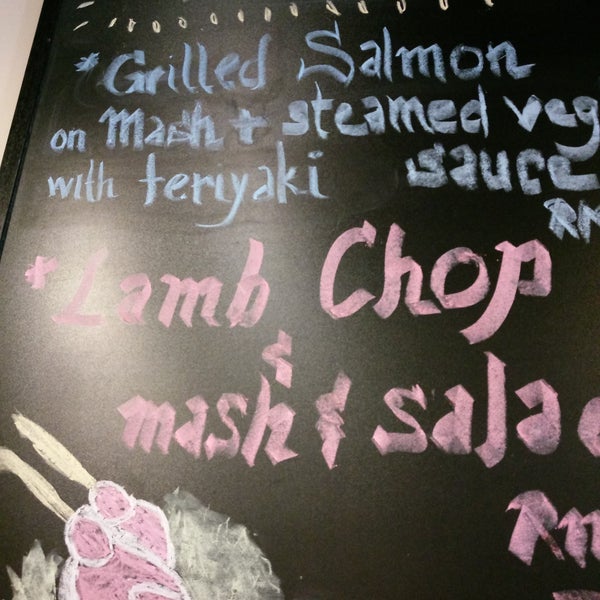 *Grilled Salmon
on Mash + steamed veg
with teriyaki sauce
RM
*Lamb Chop
&
mash & salad
Rm